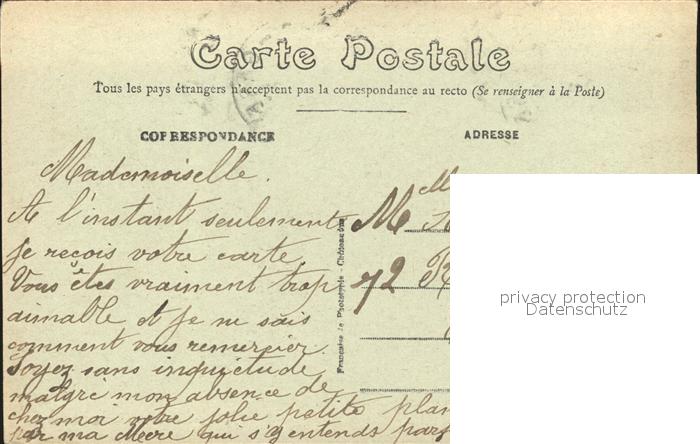 Carte Postale
Tous les pays étrangers n'acceptent pas la correspondance au recto (Se renseigner à la Poste)
CORRESPONDANCE
ADRESSE
Mademoiselle.
A l'instant seulement
je reçois votre carte,
Vous êtes vraiment trop
aimable et je ne sais
comment vous remercier.
Soyez sans inquiétude
malgré mon absence de
chez moi votre jolie petite plan
par ma Mère qui s'y entends parf
Française de Phototypie - Châteauroux
M
72 R
privacy protection
Datenschutz